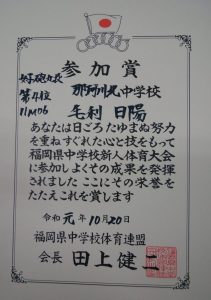 参加賞
砲丸投
第4位
11m06
那珂川北中学校
毛利 日陽
あなたは日ごろたゆまぬ努力
を重ねすぐれた心と技をもって
福岡県中学校新人体育大会
に参加しよくその成果を発揮
されました ここにその栄誉を
たたえこれを賞します
令和元年10月20日
福岡県中学校体育連盟
会長 田上健二